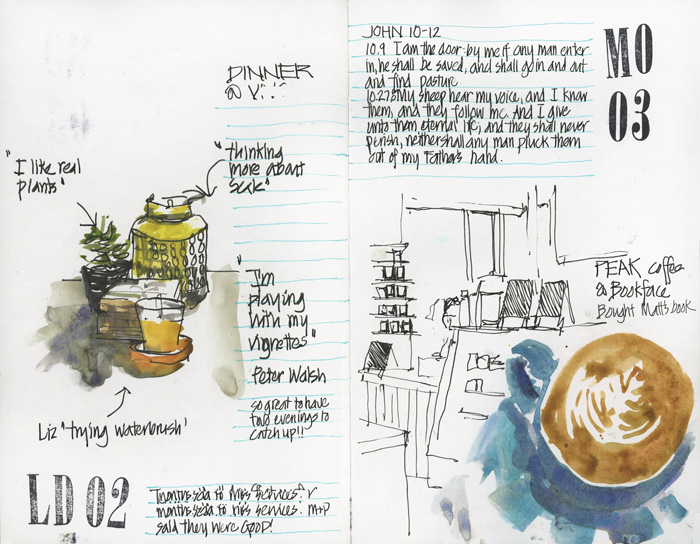 DINNER
@ V
"I like real
plants"
"thinking
more about
scale"
"I'm
playing
with my
vignettes"
Peter Walsh
so great to have
two evenings to
catch up!!
Liz "trying waterbrush"
LD 02
said they were GOOD!
JOHN 10-12
10.9 I am the door: by me if any man enter
in, he shall be saved, and shall go in and out
and find pasture
10.27 My sheep hear my voice, and I know
them, and they follow me. And I give
unto them eternal life; and they shall never
perish, neither shall any man pluck them
out of my Fathers hand.
MO
03
PEAK coffee
@ Bookface
Bought Matt's book